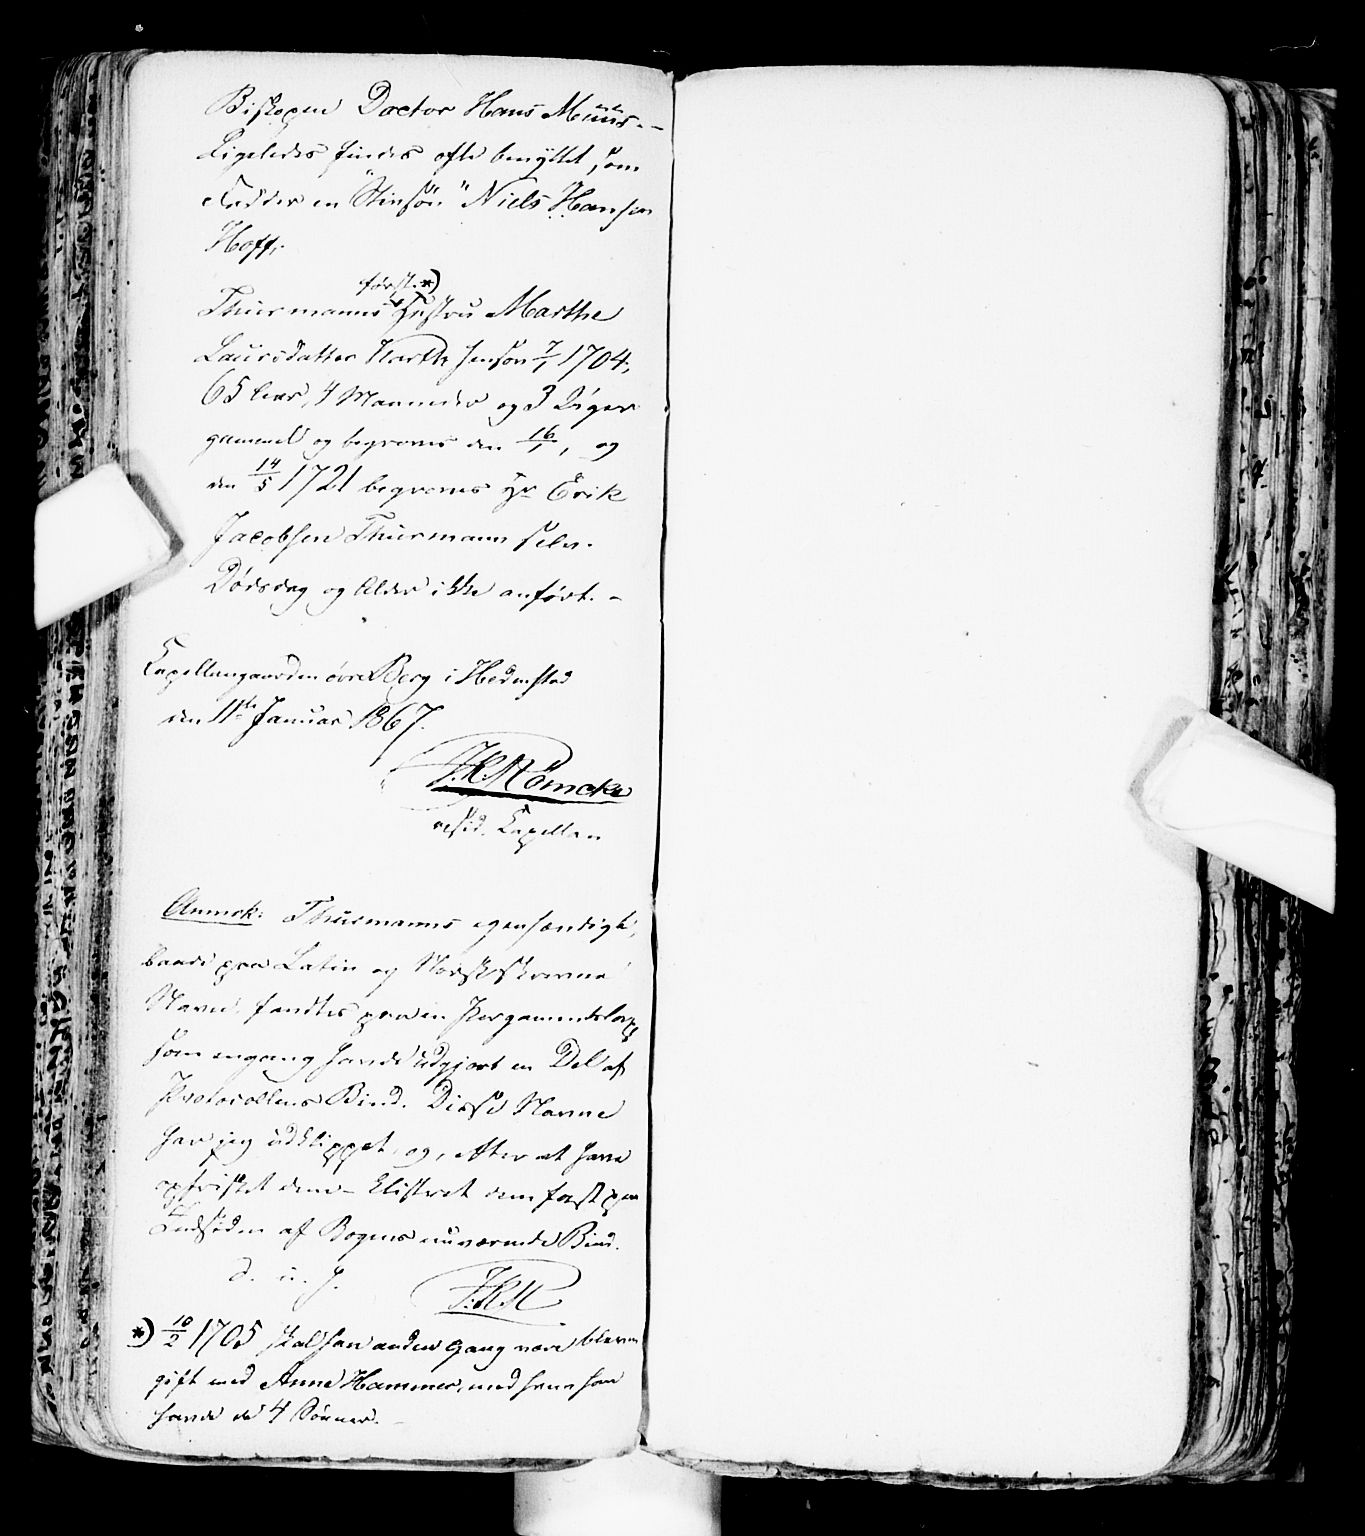 Biskopen Doctor Hans Muus.-
Ligeledes findes ofte benyttet som
Fadder en "Stivsøn" Niels Hansen
Hoff.
første *)
Thurmanns Hustru Marthe
Laursdatter Harth hensov 7/1 1704,
65 Aar, 4 Maaneder og 3 Uger
gammel og begraves den 16/1, og
den 14/5 1721 begraves Hr Erik
Jacobsen Thurmann selv.
Dødsdag og Alder ikke anført. -
Capellangaarden øvre Berg i Hedenstad
den 11te Januar 1867.
J.H. Mömcke
resid. Capellan
Anmrk: Thurmanns egenhændigt,
baade paa Latin og Norsk, skrevne
Navne fandtes paa en Pergamentslap
som engang havde udgjort en Del af
Protocollens Bind. Disse Navne
har jeg udklippet, og, efter at have
opfrisket dem - klistret dem fast paa
Indsiden af Bogens nuværende Bind.
d. u. s.
J.H.M
*) 10/2 1705 skal han anden Gang være bleven
gift med Anne Hammer, med hvem han
havde de 4 Sønner. -